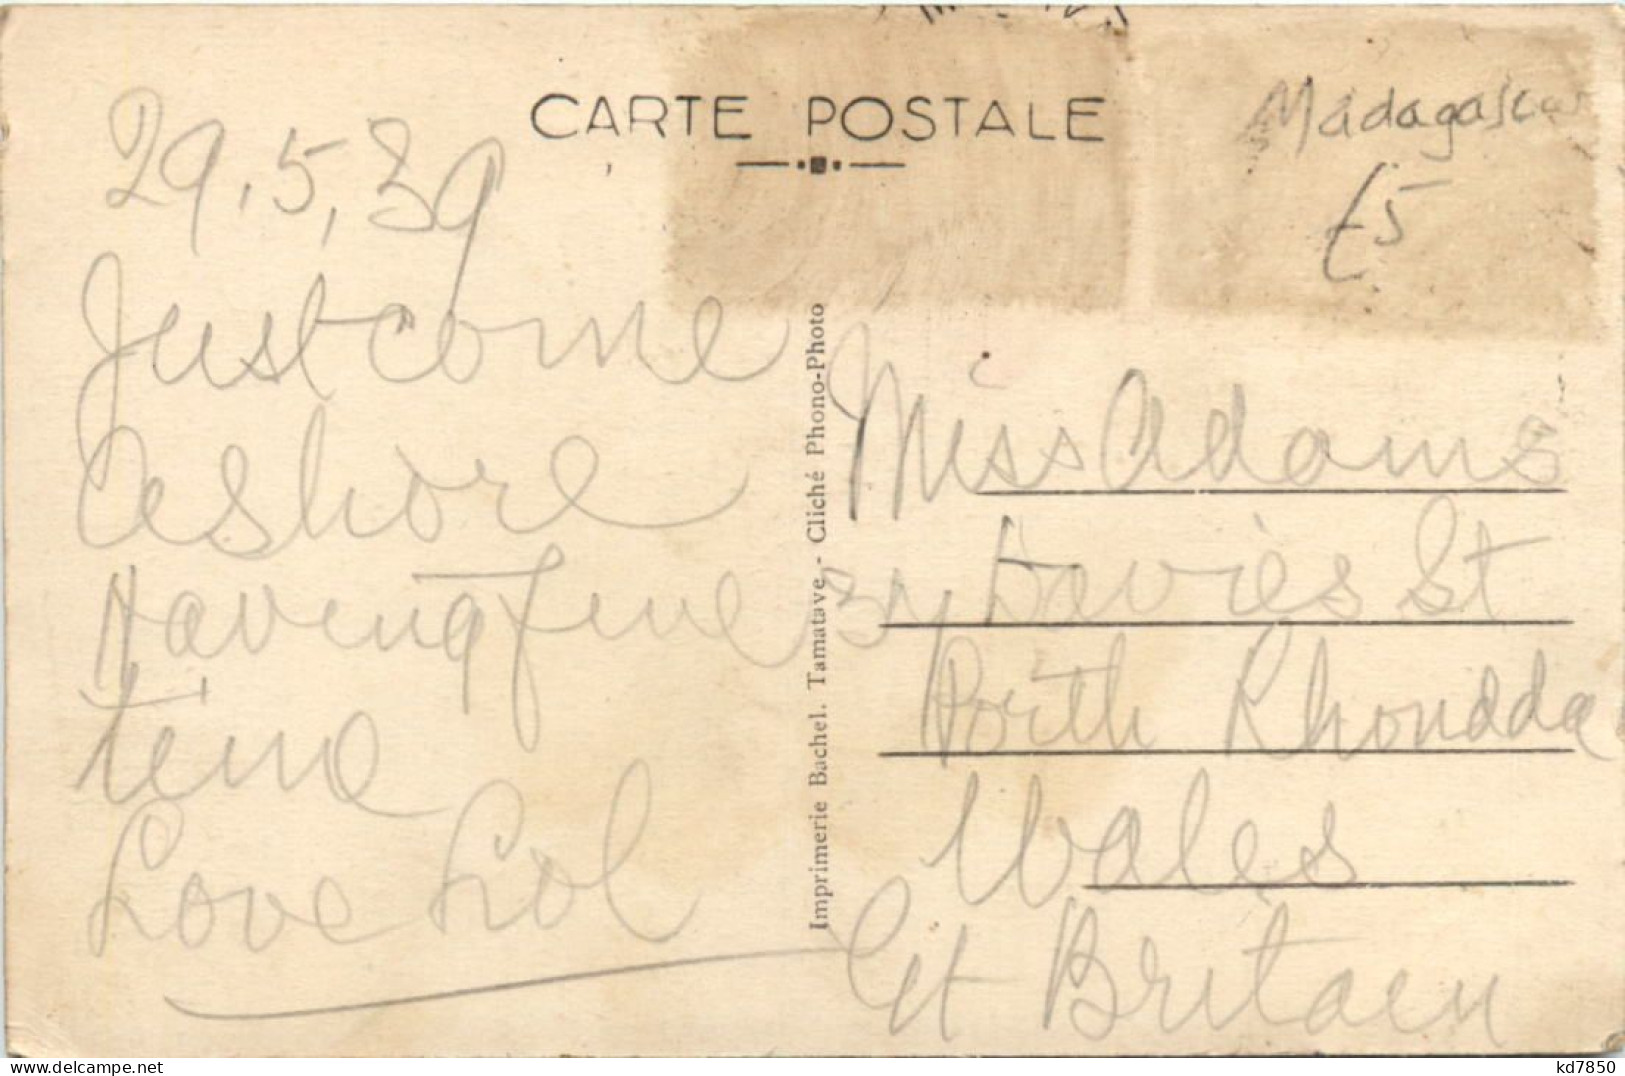 CARTE POSTALE
Madagascar
£5
29.5.39
Just come
ashore
Having fine
time
Love Lol
Imprimerie Bachel. Tamatave. - Cliché Phono-Photo
Miss Adams
Davies St
Porth Rhondda
Wales
Gt Britain
delcampe.net
kd7850